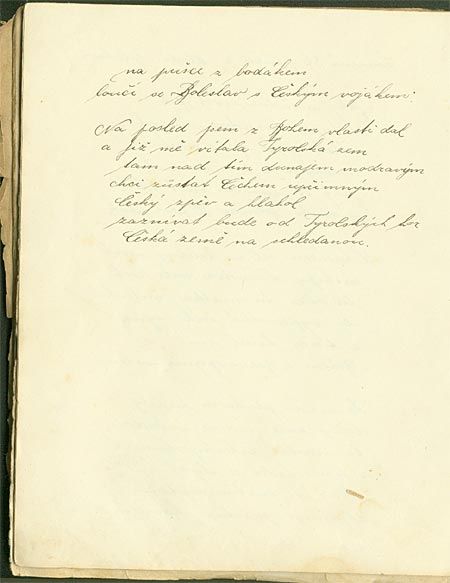 na pušce z bodákem
loučí se Boleslav s Českým vojákem.
Na posled sem z Bohem vlasti dal
a již mě vítala Tyrolská zem
tam nad tím dunajem modravým
chci zůstat Čechem upřímným
Český zpěv a hlahol
zaznívat bude od Tyrolských hor
Česká země na schledanou.